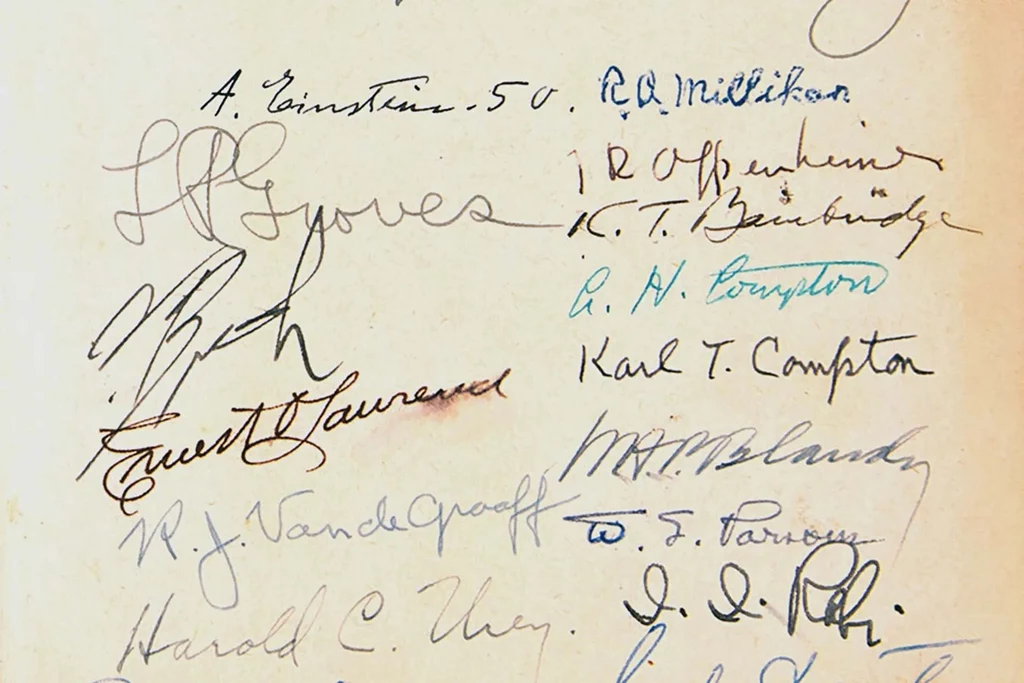 A. Einstein. 50.
L R Groves
V Bush
Ernest O Lawrence
R. J. Van de Graaff
Harold C. Urey.
R A Millikan
J R Oppenheimer
K. T. Bainbridge
A. H. Compton
Karl T. Compton
W H P Blandy
W. S. Parsons
I. I. Rabi.